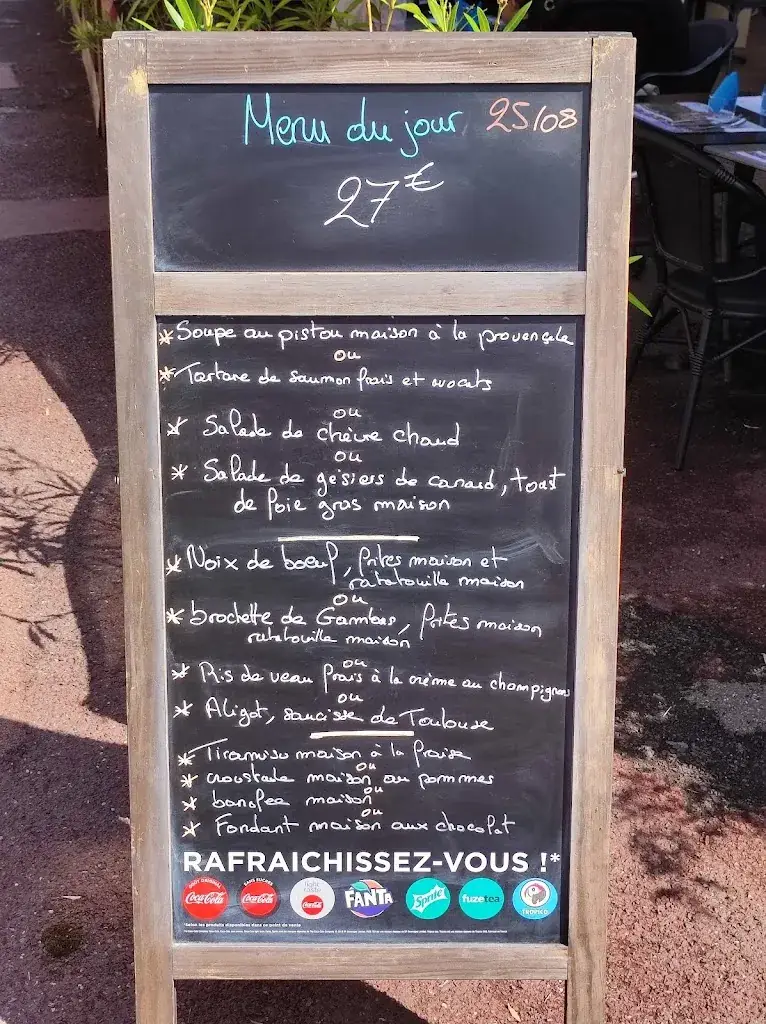 Menu du jour 25/08
27€
* Soupe au pistou maison à la provençale
ou
* Tartare de saumon frais et avocats
ou
* Salade de chèvre chaud
ou
* Salade de gésiers de canard, toast
de foie gras maison
* Noix de boeuf, frites maison et
ratatouille maison
ou
* brochette de Gambas, frites maison
ratatouille maison
ou
* Ris de veau frais à la crème au champignons
ou
* Aligot, saucisse de Toulouse
* Tiramisu maison à la fraise
ou
* croustade maison au pommes
ou
* banofee maison
ou
* Fondant maison aux chocolat
RAFRAICHISSEZ-VOUS !*
GOÛT ORIGINAL SANS SUCRES light taste
Coca-Cola Coca-Cola Coca-Cola FANTA Sprite fuzetea TROPICO
*Selon les produits disponibles dans ce point de vente